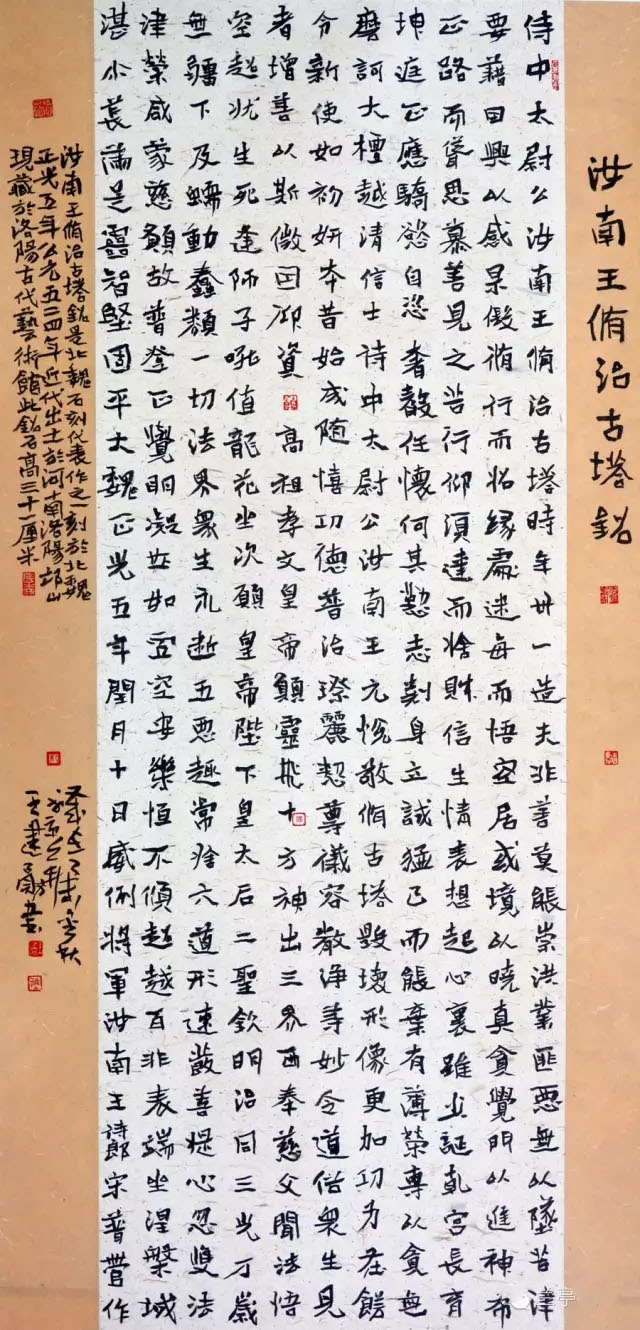 汝南王脩治古塔銘
侍中太尉公汝南王脩治古塔時年卅一造夫非善莫能崇洪業匪惡無以墜苦津
要藉因興以感果假脩行而招緣處迷每而悟居或境以曉真貪覺門以進神希
正路而聳思慕善見之岩行仰須達而捨財信生情表想起心裏雖少誕乹宮長育
坤庭正應驕慾自恣奢馥任懷何其懃志剋身立誠猛己而能棄有薄榮專以貪無
磨訶大檀越清信士詩中太尉公汝南王元悅敬脩古塔毀壞形像更加功力在餝
令新使如初妍本昔始成随憘功德普治璙麗恝尊儀容嚴淨等妙令道俗衆生見
者增善以斯微因仰資高祖孝文皇帝願靈飛十方神出三界面奉慈父聞法悟
空超状生死逢師子吼值龍花坐次願皇帝陛下皇太后二聖欽明治同三光万歲
無疆下及蠕動蠢類一切法界衆生永逝五惡趣常捨六道形速發善提心忍雙法
津榮咸蒙慈願故普登正覺明凝其如空安樂恒不傾超越百非表端坐涅槃域
湛尒長蕩是靈智堅固平大魏正光五年閏月十日威例將軍汝南王詩郎宋普營作
汝南王脩治古塔銘是北魏石刻代表作之一刻於北魏
正光五年公元五二四年近代出土於河南洛陽邙山
現藏於洛陽古代藝術館此銘石高三十一厘米
金秋
王建書